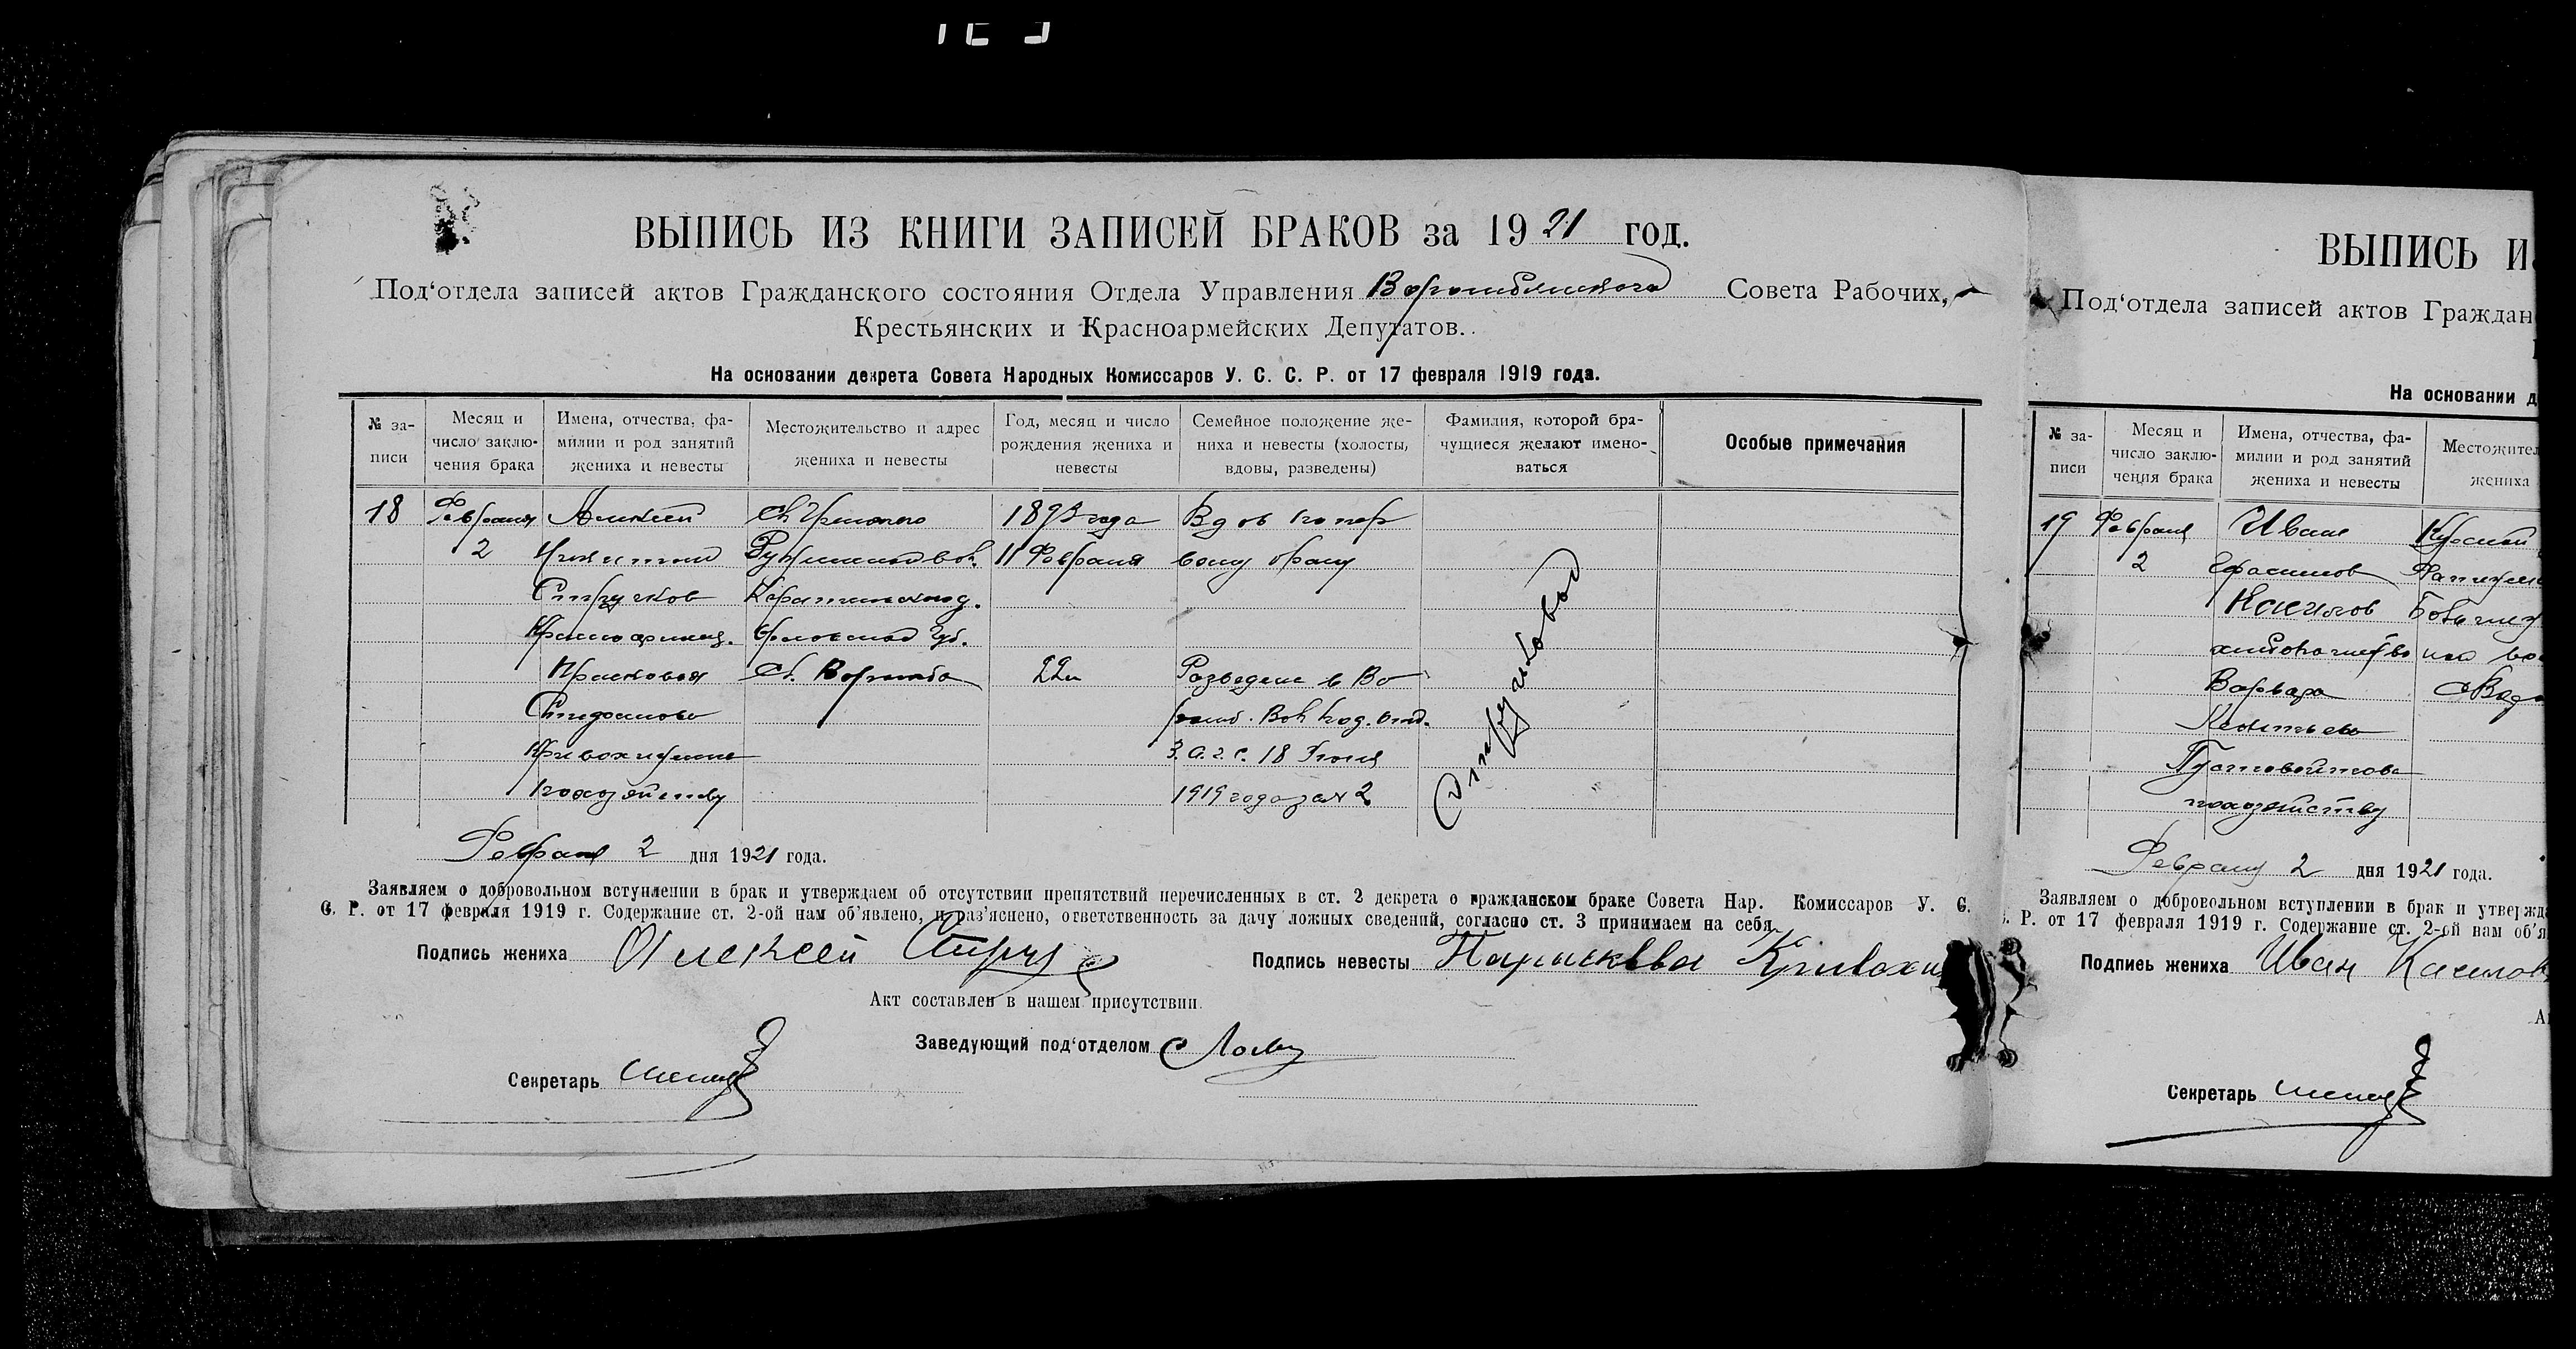 ВЫПИСЬ ИЗ КНИГИ ЗАПИСЕЙ БРАКОВ за 1921 год.
Под‘отдела записей актов Гражданского состояния Отдела Управления Ворожбянского Совета Рабочих,
Крестьянских и Красноармейских Депутатов.
На основании декрета Совета Народных Комиссаров У. С. С. Р. от 17 февраля 1919 года.
№ за-
писи
Месяц и
число заклю-
чения брака
Имена, отчества, фа-
милии и род занятий
жениха и невесты
Местожительство и адрес
жениха и невесты
Год, месяц и число
рождения жениха и
невесты
Семейное положение же-
ниха и невесты (холосты,
вдовы, разведены)
Фамилия, которой бра-
чущиеся желают имено-
ваться
Особые примечания
18
Февраля
2
Алексей
Никитин
Стручков
Прасковья
Кривохижина
По хозяйству
Орловской Губ.
С. Ворожба
1893 года
11 Февраля
22
Вдов по пер
вому браку
Разведена в Во
З.а.г.с. 18 Июня
1919 года за № 2
Стручковы
Февраля 2 дня 1921 года.
Заявляем о добровольном вступлении в брак и утверждаем об отсутствии препятствий перечисленных в ст. 2 декрета о гражданском браке Совета Нар. Комиссаров У. С.
С. Р. от 17 февраля 1919 г. Содержание ст. 2-ой нам об’явлено, и раз’яснено, ответственность за дачу ложных сведений, согласно ст. 3 принимаем на себя.
Подпись жениха Алексей Струч
Подпись невесты Парасковья Кривохи
Акт составлен в нашем присутствии.
Заведующий под‘отделом
Секретарь
ВЫПИСЬ ИЗ
Под‘отдела записей актов Граждан
На основании д
№ за-
писи
Месяц и
число заклю-
чения брака
Имена, отчества, фа-
милии и род занятий
жениха и невесты
Местожител
жениха
19
Февраля
2
Иван
Герасимов
Касилов
хлебопашество
Варвара
Леонтьева
Пустовойтова
по хозяйству
Курской
Февраля 2 дня 1921 года.
Заявляем о добровольном вступлении в брак и утвержд
Р. от 17 февраля 1919 г. Содержание ст. 2-ой нам об’я
Подпись жениха Иван Касилов
А
Секретарь